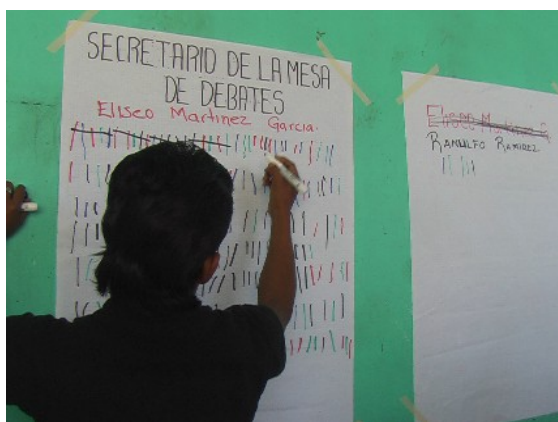 SECRETARIO DE LA MESA
DE DEBATES
Eliseo Martinez Garcia.
RANULFO RAMIREZ